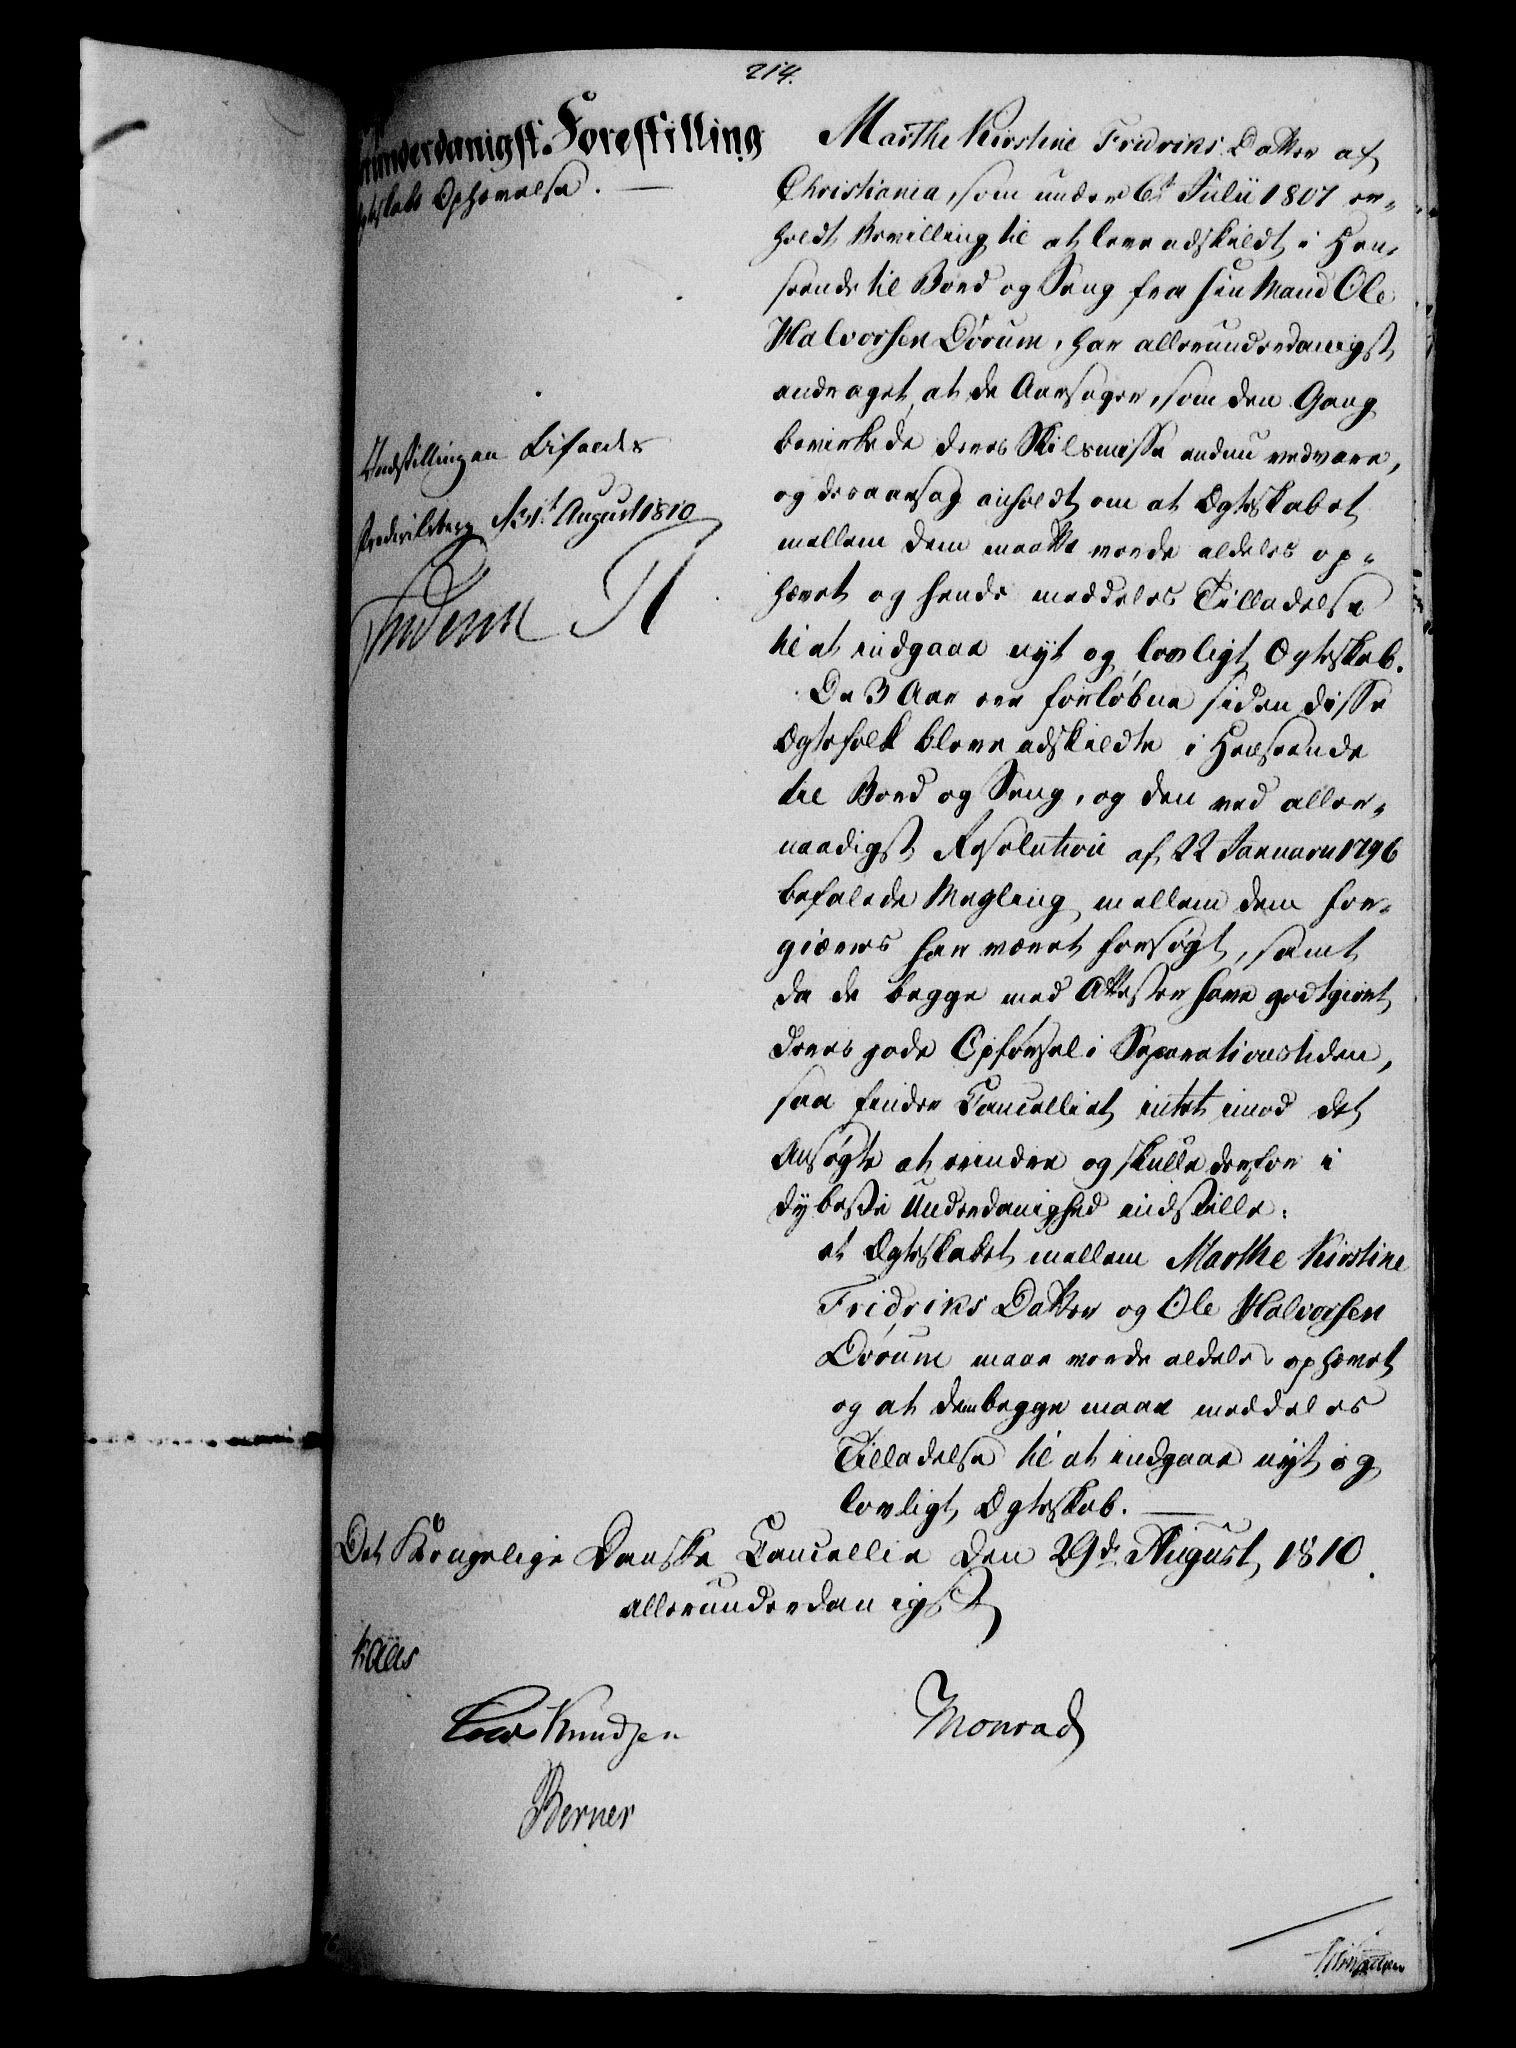 214.
Allerunderdanigst Forestilling
Ægteskabs Ophævelse. —
Indstillingen bifaldes
Frederiksberg d 31t August 1810
Frederik R
Marthe Kirstine Fridriks Datter af
Christiania, som under 6t Julii 1807 er-
holdt Bevilling til at leve adskildt i Hen-
seende til Bord og Seng fra sin Mand Ole
Halvorsen Dørum, har allerunderdanigst
andraget, at de Aarsager, som den Gang
bevirkede deres Skilsmisse endnu vedvare,
og desaarsag anholdt om at Ægteskabet
mellem dem maatte vorde aldeles op-
hævet og hende meddeles Tilladelse
til at indgaae nyt og lovligt Ægteskab.
Da 3 Aar ere forløbne siden disse
Ægtefolk bleve adskildte i Henseende
til Bord og Seng, og den ved aller-
naadigst Resolution af 22 Januarii 1796
befalede Megling mellem dem for-
giæves har været forsøgt, samt
da de begge med Attester have godtgiort
deres gode Opførsel i Separationstiden,
saa finder Cancelliet intet imod det
Ansøgte at erindre og skulle derfor i
dybeste Underdanighed indstille:
at Ægteskabet mellem Marthe Kirstine
Fridriks Datter og Ole Halvorsen
Dørum maae vorde aldeles ophævet
og at dem begge maae meddeles
Tilladelse til at indgaae nyt og
lovligt Ægteskab. —
Det Kongelige Danske Cancellie den 29de August 1810.
allerunderdanigst
Kaas
Knudsen
Monrad
Berner